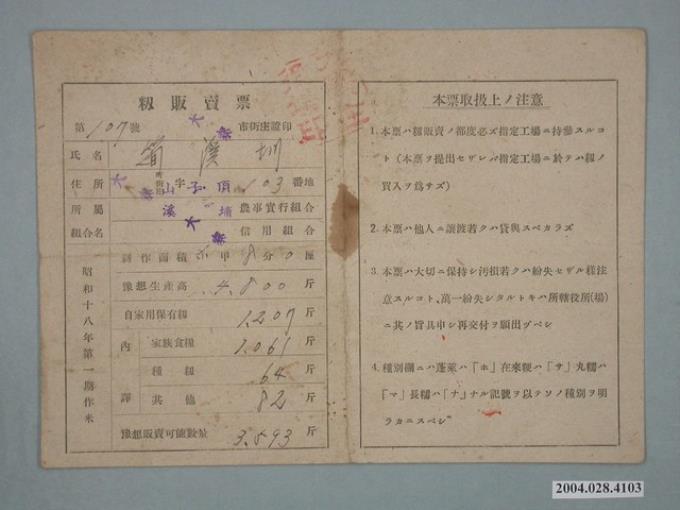 籾販賣票
第107號 市街庄證印
氏名
住所 字 山子頂 103番地
所屬組合名 溪埔 農事實行組合
信用組合
昭和十八年第一期作米
耕作面積 甲8分0厘
豫想生產高 4.800斤
自家用保有籾 1.207斤
內譯
家族食糧 1.061斤
種籾 64斤
其他 82斤
豫想販賣可能數量 3.593斤
本票取扱上ノ注意
1. 本票ハ籾販賣ノ都度必ズ指定工場ニ持參スルコ
ト(本票ヲ提出セザレバ指定工場ニ於テハ籾ノ
買入ヲ爲サズ)
2. 本票ハ他人ニ讓渡若クハ貸與スベカラズ
3. 本票ハ大切ニ保持シ汚損若クハ紛失セザル樣注
意スルコト、萬一紛失シタルトキハ所轄役所(場)
ニ其ノ旨具申シ再交付ヲ願出ヅベシ
4. 種別欄ニハ蓬萊ハ「ホ」在來粳ハ「サ」丸糯ハ
「マ」長糯ハ「ナ」ナル記號ヲ以テソノ種別ヲ明
ラカニスベシ
2004.028.4103